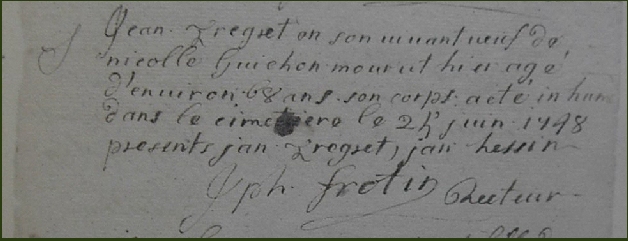 Jean Tregret en son vivant veuf de
nicolle Guichon mourut hier agé
d'environ 68 ans son corps a eté inhum
dans le cimetiere le 24 juin 1748
presents jan Tregret, jan hessin
Jph. frotin Recteur